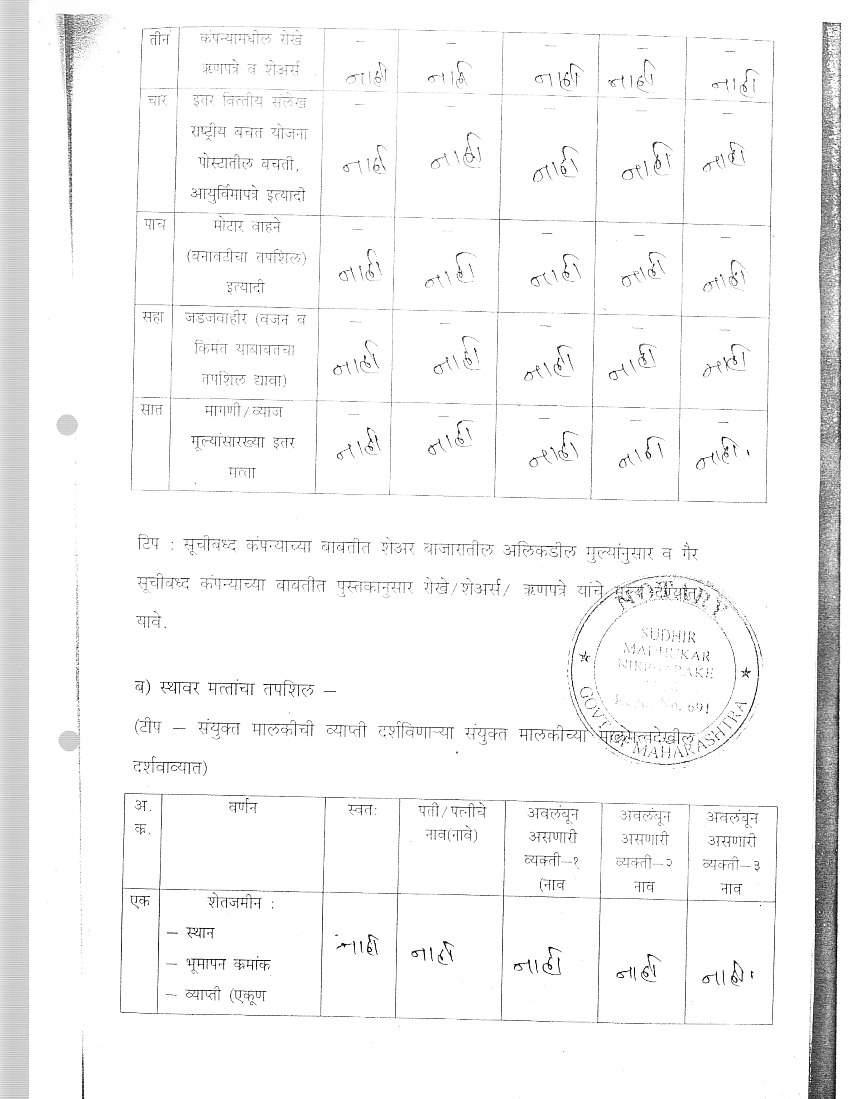 तीन कंपन्यामधील रोखे – – – – –
ऋणपत्रे व शेअर्स नाही नाही नाही नाही नाही
चार इतर वित्तीय संलेख – – – – –
राष्ट्रीय बचत योजना
पोस्टातील बचती, नाही नाही नाही नाही नाही
आयुर्विमापत्रे इत्यादी
पाच मोटार वाहने – – – – –
(बनावटीचा तपशिल) नाही नाही नाही नाही नाही
इत्यादी
सहा जडजवाहीर (वजन व – – – – –
किमंत याबाबतचा नाही नाही नाही नाही नाही
तपशिल द्यावा)
सात मागणी/व्याज – – – – –
मूल्यांसारख्या इतर नाही नाही नाही नाही नाही.
मत्ता
टिप : सूचीबध्द कंपन्याच्या बाबतीत शेअर बाजारातील अलिकडील मुल्यांनुसार व गैर
सूचीबध्द कंपन्याच्या बाबतीत पुस्तकानुसार रोखे/शेअर्स/ ऋणपत्रे यांचे मूल्य देण्यात
यावे.
NOTARY
SUDHIR
MADHUKAR
691
GOVT. OF MAHARASHTRA
ब) स्थावर मत्तांचा तपशिल –
(टीप – संयुक्त मालकीची व्याप्ती दर्शविणाऱ्या संयुक्त मालकीच्या मालमत्तादेखील
दर्शवाव्यात)
अ. वर्णन स्वतः पती/पत्नीचे अवलंबून अवलंबून अवलंबून
क्र. नाव(नावे) असणारी असणारी असणारी
व्यक्ती–१ व्यक्ती–२ व्यक्ती–३
(नाव नाव नाव
एक शेतजमीन :
– स्थान नाही नाही नाही नाही नाही.
– भूमापन क्रमांक
– व्याप्ती (एकूण